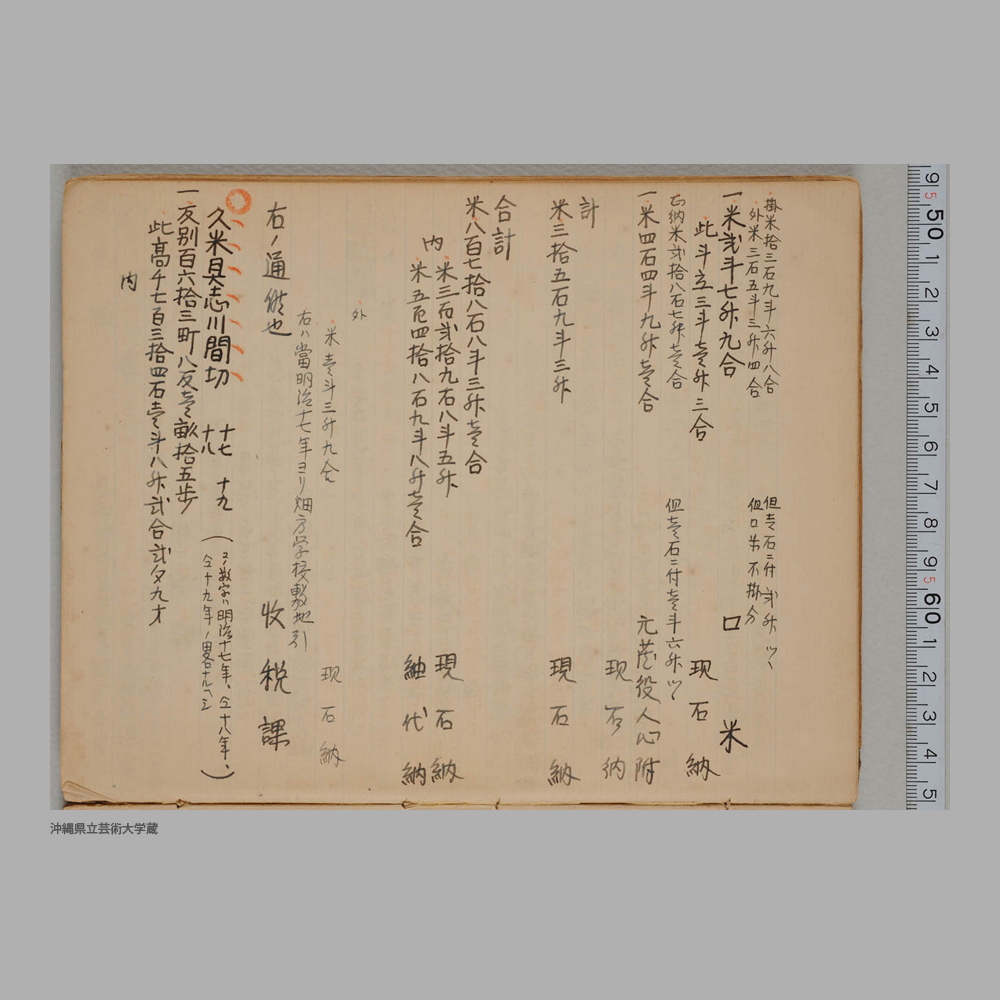 掛米拾三石九斗六升八合
外米三石五斗三升四合
但壱石ニ付弐升ツヽ
但口米不掛分
一米弐斗七升九合 口米
此斗立三斗壱升三合 現石納
正納米弐拾八石七升壱合 但壱石ニ付壱斗六升ツヽ
一米四石四斗九升壱合 元蔵役人心附
現石納
計
米三拾五石九斗三升 現石納
合計
米八百七拾八石八斗三升壱合
内
米三百弐拾九石八斗五升 現石納
米五百四拾八石九斗八升壱合 紬代納
外
米壱斗三升九合 現石納
右ハ當明治十七年ヨリ畑方学校敷地引
右ノ通候也 收税課
久米具志川間切 十七 十八 十九
(コノ数字ハ明治十七年、仝十八年、仝十九年ノ畧ナルヘシ)
一反別百六拾三町八反壱畝拾五歩
此高千七百三拾四石壱斗八升弐合弐夕九才
内
9 5 50 1 2 3 4 5 6 7 8 9 5 60 1 2 3 4 5
沖縄県立芸術大学蔵